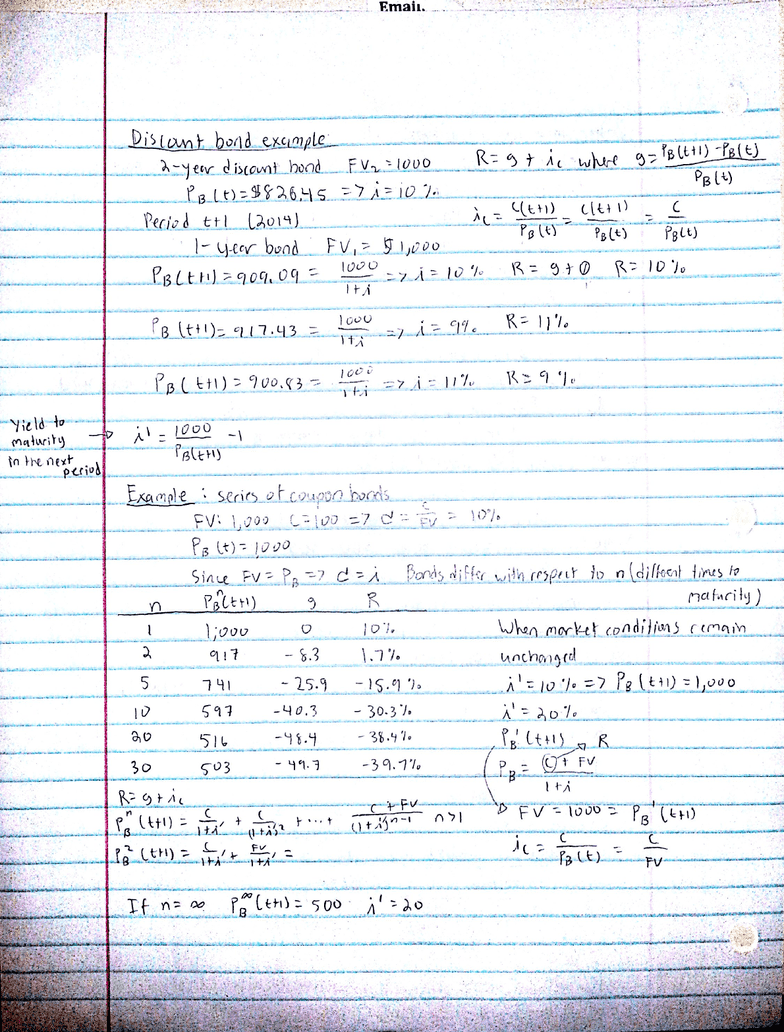 Email.
Discount bond example
2-year discount bond FV₂ = 1000 R = g + i_c where g = (P_B(t+1) - P_B(t)) / P_B(t)
P_B(t) = $826.45 => i = 10%
Period t+1 (2014) i_c = C(t+1)/P_B(t) = C(t+1)/P_B(t) = C/P_B(t)
1-year bond FV₁ = $1,000
P_B(t+1) = 909.09 = 1000/(1+i) => i = 10% R = g + 0 R = 10%
P_B(t+1) = 917.43 = 1000/(1+i) => i = 9% R = 11%
P_B(t+1) = 900.83 = 1000/(1+i) => i = 11% R = 9%
Yield to maturity in the next period → i' = 1000/P_B(t+1) - 1
Example: series of coupon bonds
FV: 1,000 C=100 => d = C/FV = 10%
P_B(t) = 1000
Since FV = P_B => d = i Bonds differ with respect to n (different times to maturity)
n P_B^n(t+1) g R
1 1,000 0 10% When market conditions remain
2 917 -8.3 1.7% unchanged
5 741 -25.9 -15.9% i' = 10% => P_B(t+1) = 1,000
10 597 -40.3 -30.3% i' = 20%
20 516 -48.4 -38.4% P_B'(t+1) R
30 503 -49.7 -39.7% P_B = (C + FV)/(1+i)
R = g + i_c
P_B^n(t+1) = C/(1+i') + C/(1+i)² + ... + (C+FV)/(1+i)^(n-1) n>1 FV = 1000 = P_B'(t+1)
P_B²(t+1) = C/(1+i') + FV/(1+i') = i_c = C/P_B(t) = C/FV
If n = ∞ P_B^∞(t+1) = 500 i' = 20